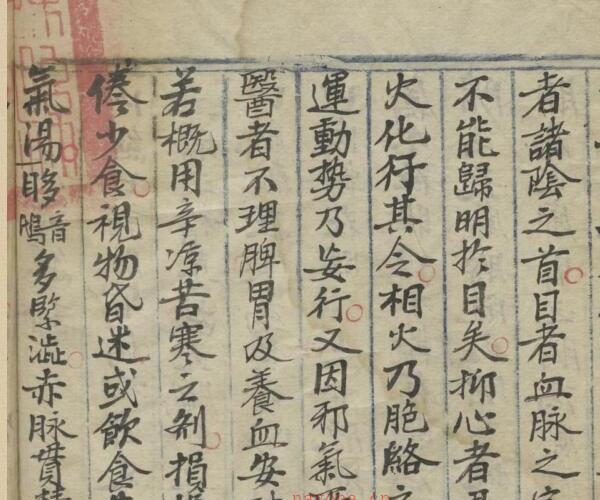 者諸陰之首目者血脉之
不能歸明於目矣抑心者
火化行其令相火乃胞絡
運動勢乃妄行又因邪氣
醫者不理脾胃及養血安
若概用辛凉苦寒之剂損
倦少食視物昏迷或飲食
氣湯眵音鴟多緊澁赤脉貫